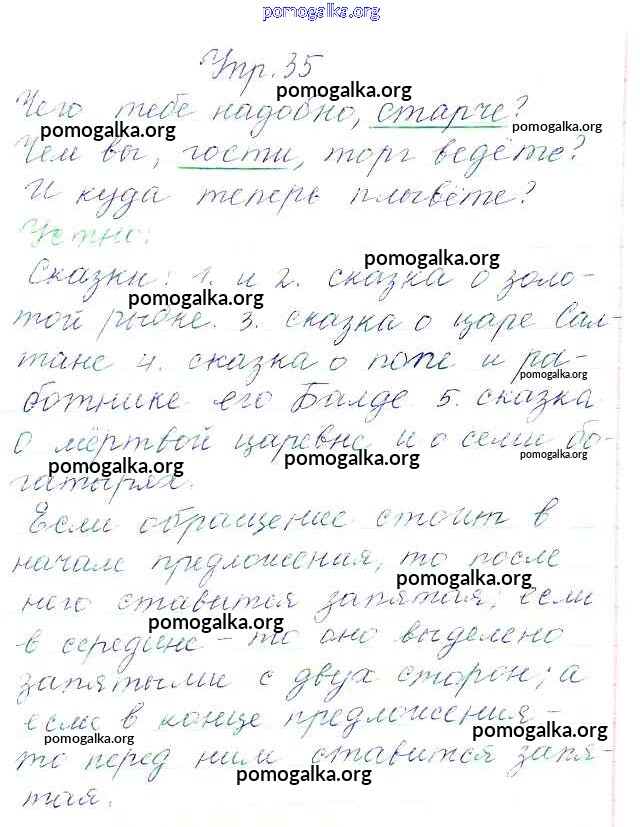 pomogalka.org
Упр. 35
pomogalka.org
Чего тебе надобно, старче?
pomogalka.org pomogalka.org
Чем вы, гости, торг ведёте?
И куда теперь плывёте?
Устно:
pomogalka.org
Сказки: 1. и 2. сказка о золо-
pomogalka.org
той рыбке. 3. сказка о царе Сал-
тане 4. сказка о попе и ра-
pomogalka.org
ботнике его Балде 5. сказка
о мёртвой царевне и о семи бо-
pomogalka.org pomogalka.org pomogalka.org
гатырях.
Если обращение стоит в
начале предложения, то после
pomogalka.org
него ставится запятая; если
pomogalka.org
в середине - то оно выделено
запятыми с двух сторон; а
если в конце предложения -
pomogalka.org pomogalka.org
то перед ним ставится запя-
pomogalka.org
тая.